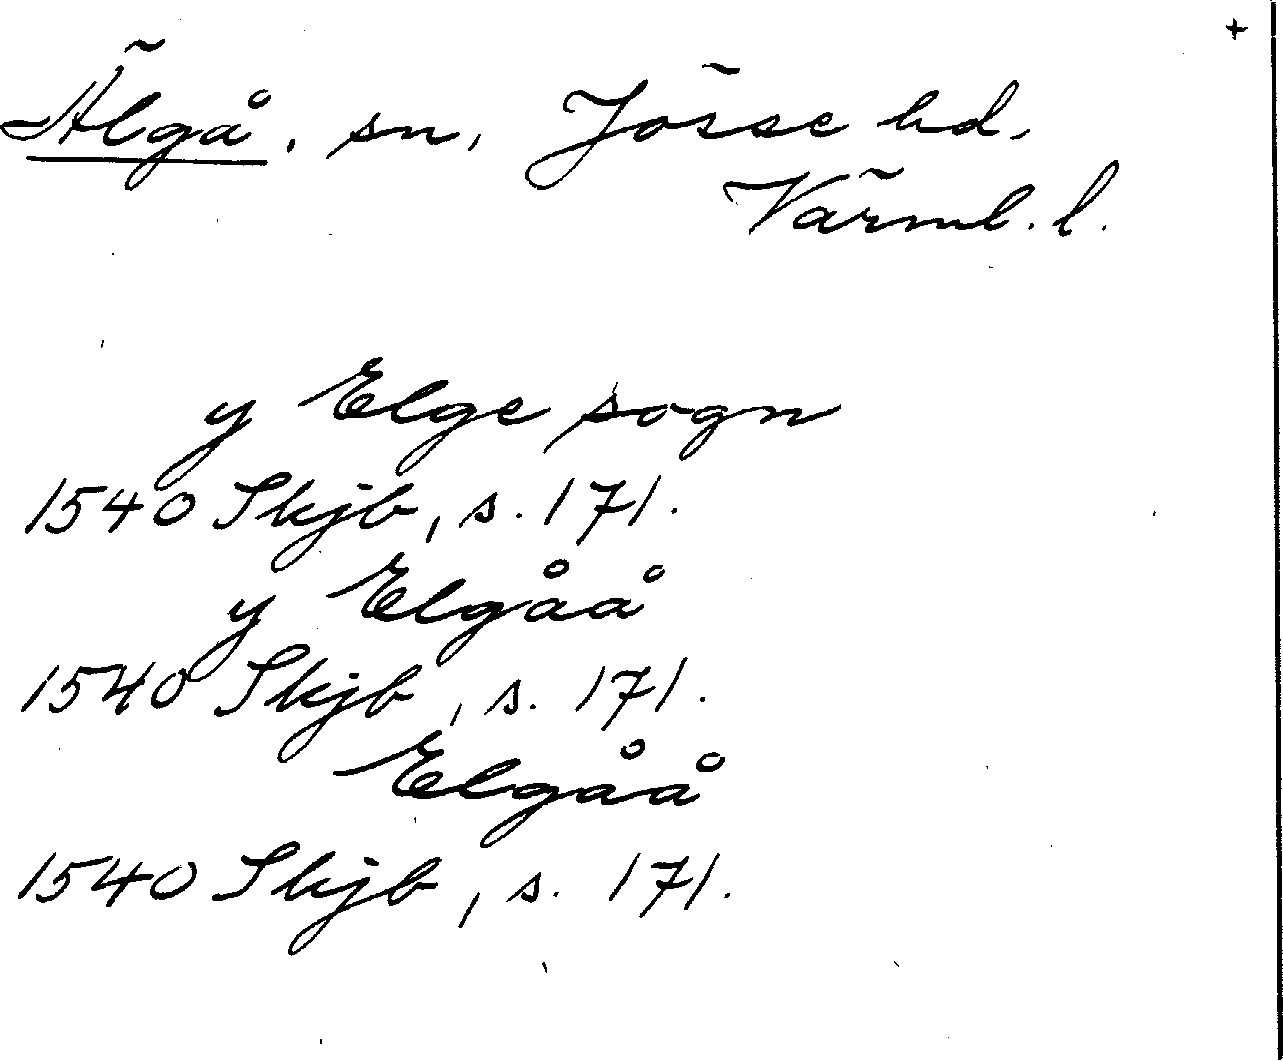 +
Älgå, sn, Jösse hd,
Värml. l.
y Elge sogn
1540 Skjb, s. 171.
y Elgåå
1540 Skjb, s. 171.
Elgåå
1540 Skjb, s. 171.